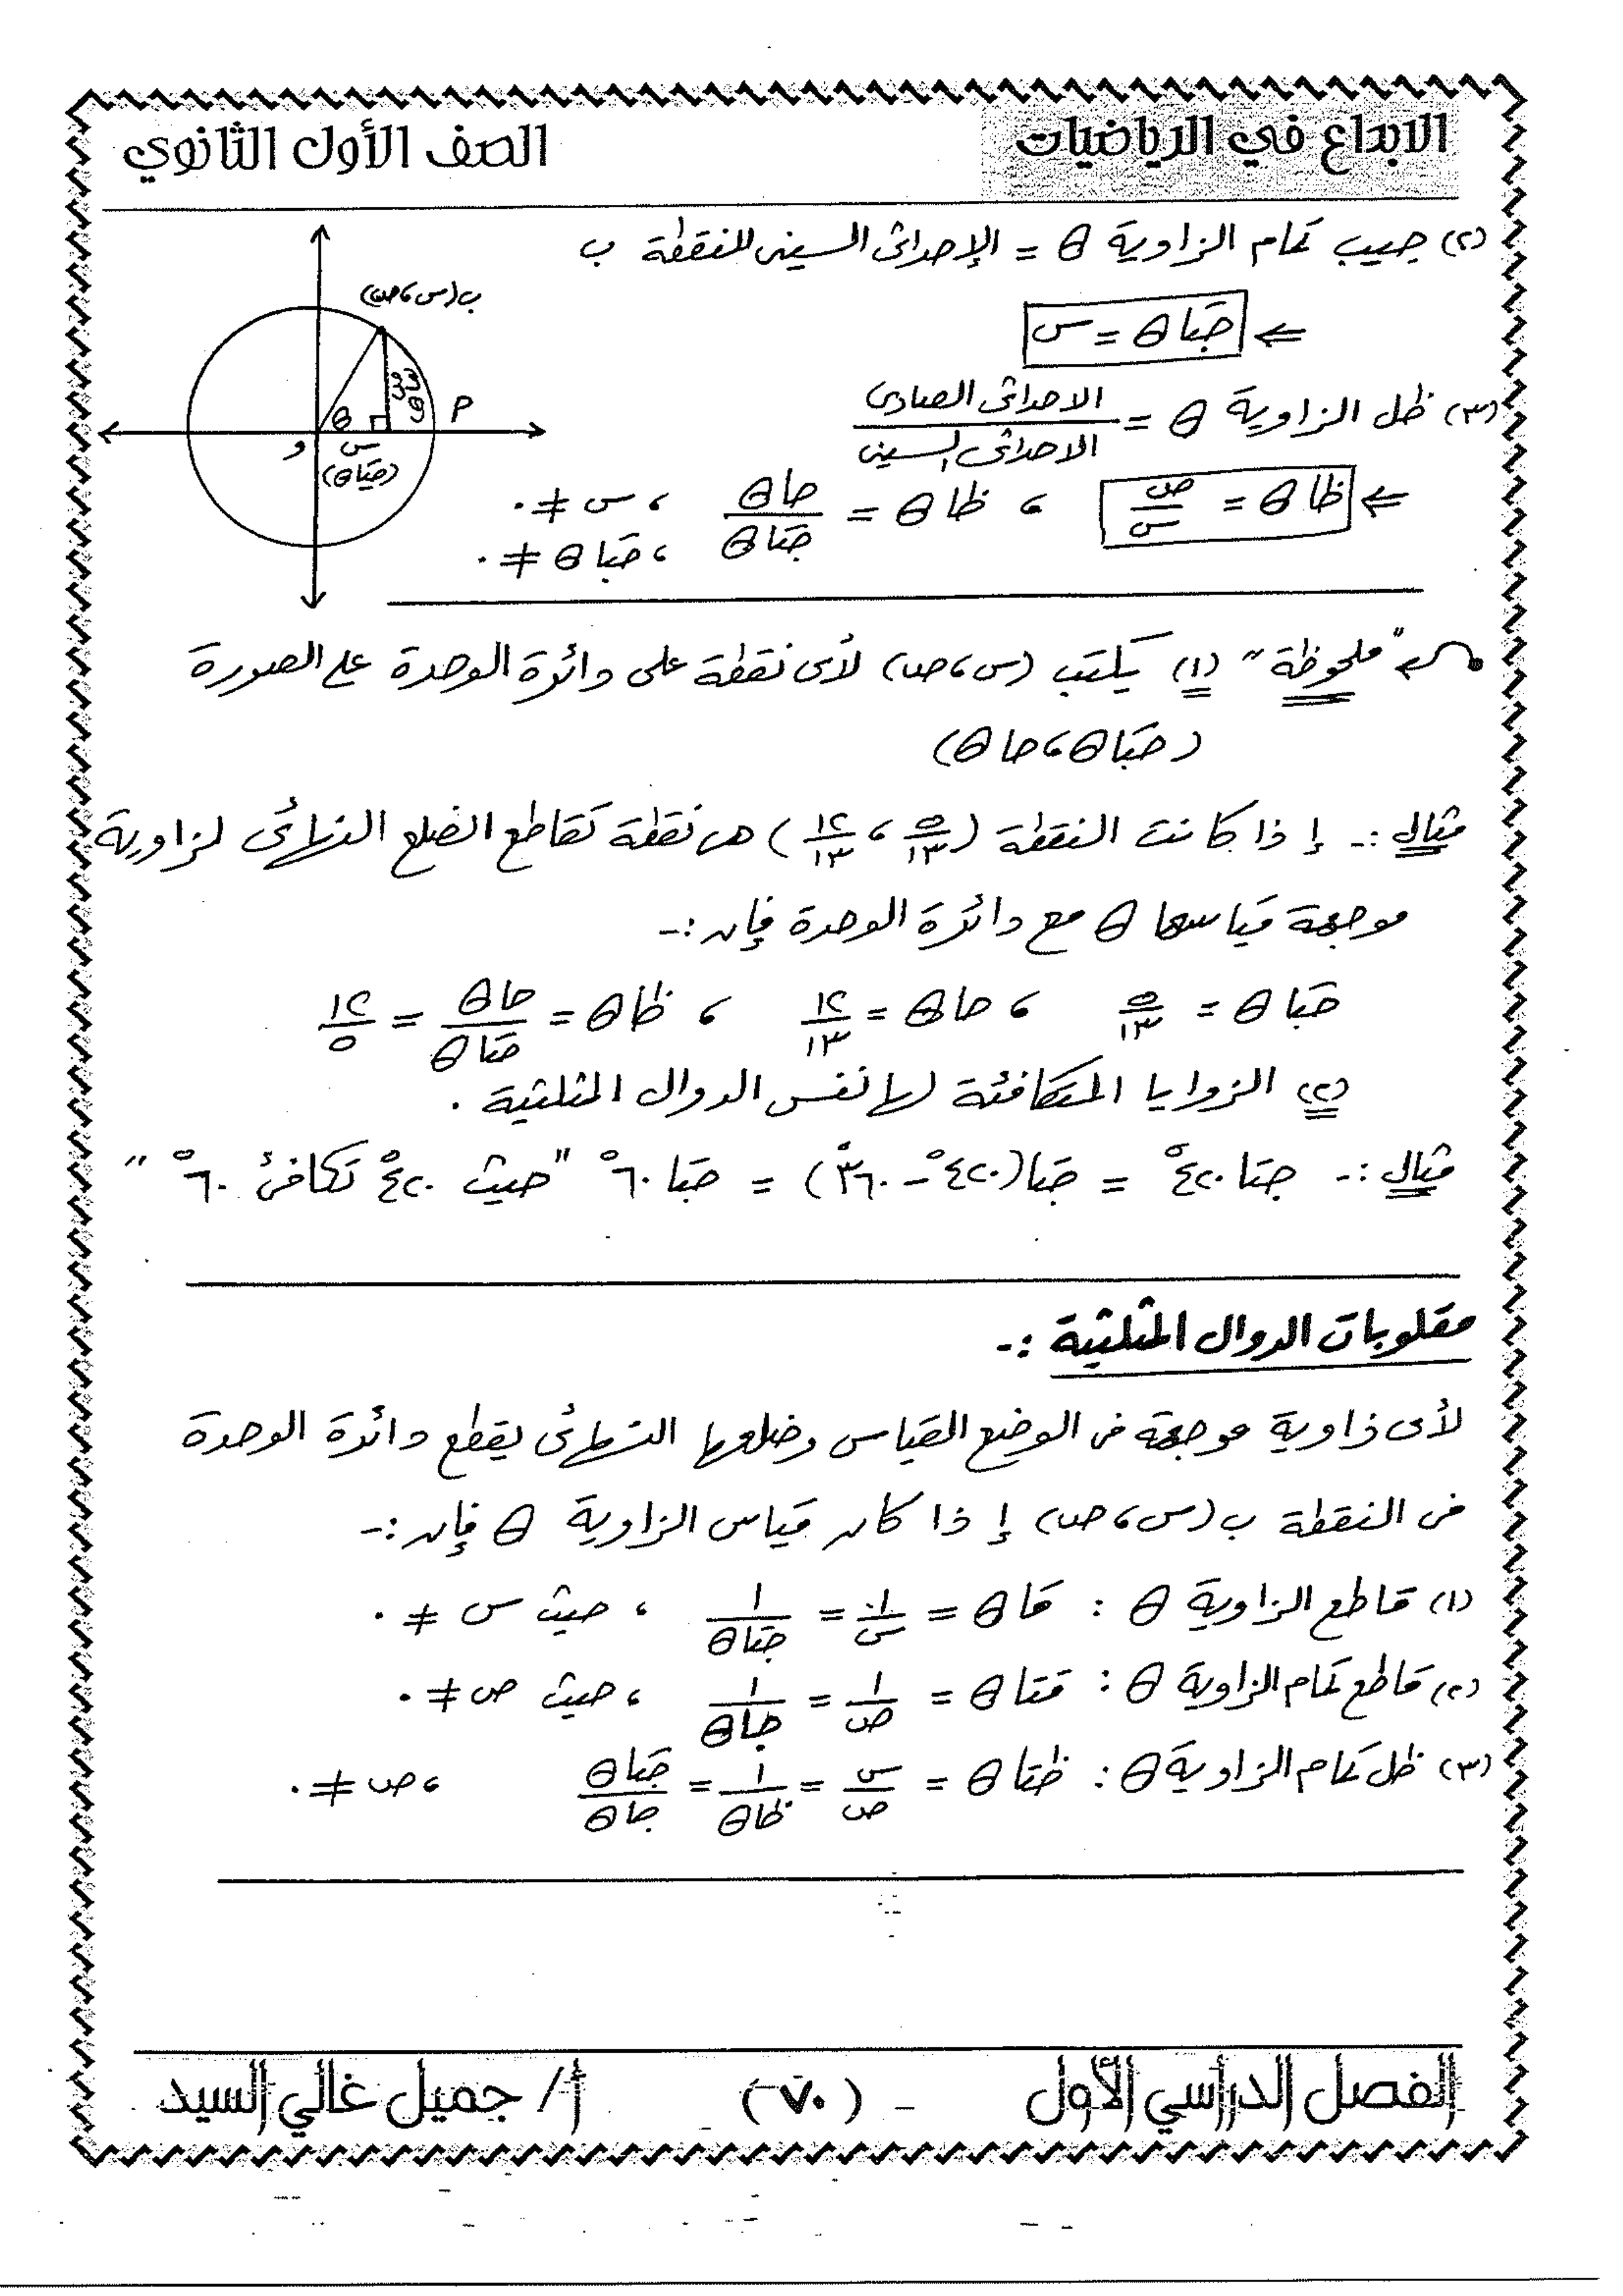 الابداع في الرياضيات
الصف الأول الثانوي
(٢) جيب تمام الزاوية θ = الإحداثى السينى للنقطة ب
⇐ جتا θ = س
(٣) ظل الزاوية θ = الاحداثى الصادى / الاحداثى السينى
⇐ ظا θ = ص / س ، ظا θ = جا θ / جتا θ ، س ≠ ٠
، جتا θ ≠ ٠
ب (س ، ص)
θ
و
س
(جتا θ)
ص
جا θ
م
"ملحوظة" (١) يكتب (س ، ص) لأى نقطة على دائرة الوحدة على الصورة
(جتا θ ، جا θ)
مثال :- إذا كانت النقطة (٥/١٣ ، ١٢/١٣) هى نقطة تقاطع الضلع النهائى لزاوية
موجهة قياسها θ مع دائرة الوحدة فإن :-
جتا θ = ٥/١٣ ، جا θ = ١٢/١٣ ، ظا θ = جا θ / جتا θ = ١٢/٥
(٢) الزوايا المتكافئة لها نفس الدوال المثلثية .
مثال :- جتا ٤٢٠° = جتا (٤٢٠° - ٣٦٠°) = جتا ٦٠° "حيث ٤٢٠° تكافئ ٦٠°"
مقلوبات الدوال المثلثية :-
لأى زاوية موجهة فى الوضع القياسى وضلعها النهائى يقطع دائرة الوحدة
فى النقطة ب (س ، ص) إذا كان قياس الزاوية θ فإن :-
(١) قاطع الزاوية θ : قا θ = ١/س = ١/جتا θ ، حيث س ≠ ٠
(٢) قاطع تمام الزاوية θ : قتا θ = ١/ص = ١/جا θ ، حيث ص ≠ ٠
(٣) ظل تمام الزاوية θ : ظتا θ = س/ص = ١/ظا θ = جتا θ / جا θ ، ص ≠ ٠
الفصل الدراسي الأول
(٧٠)
أ/ جميل غالي السيد